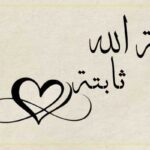 ة الله
ثابتة